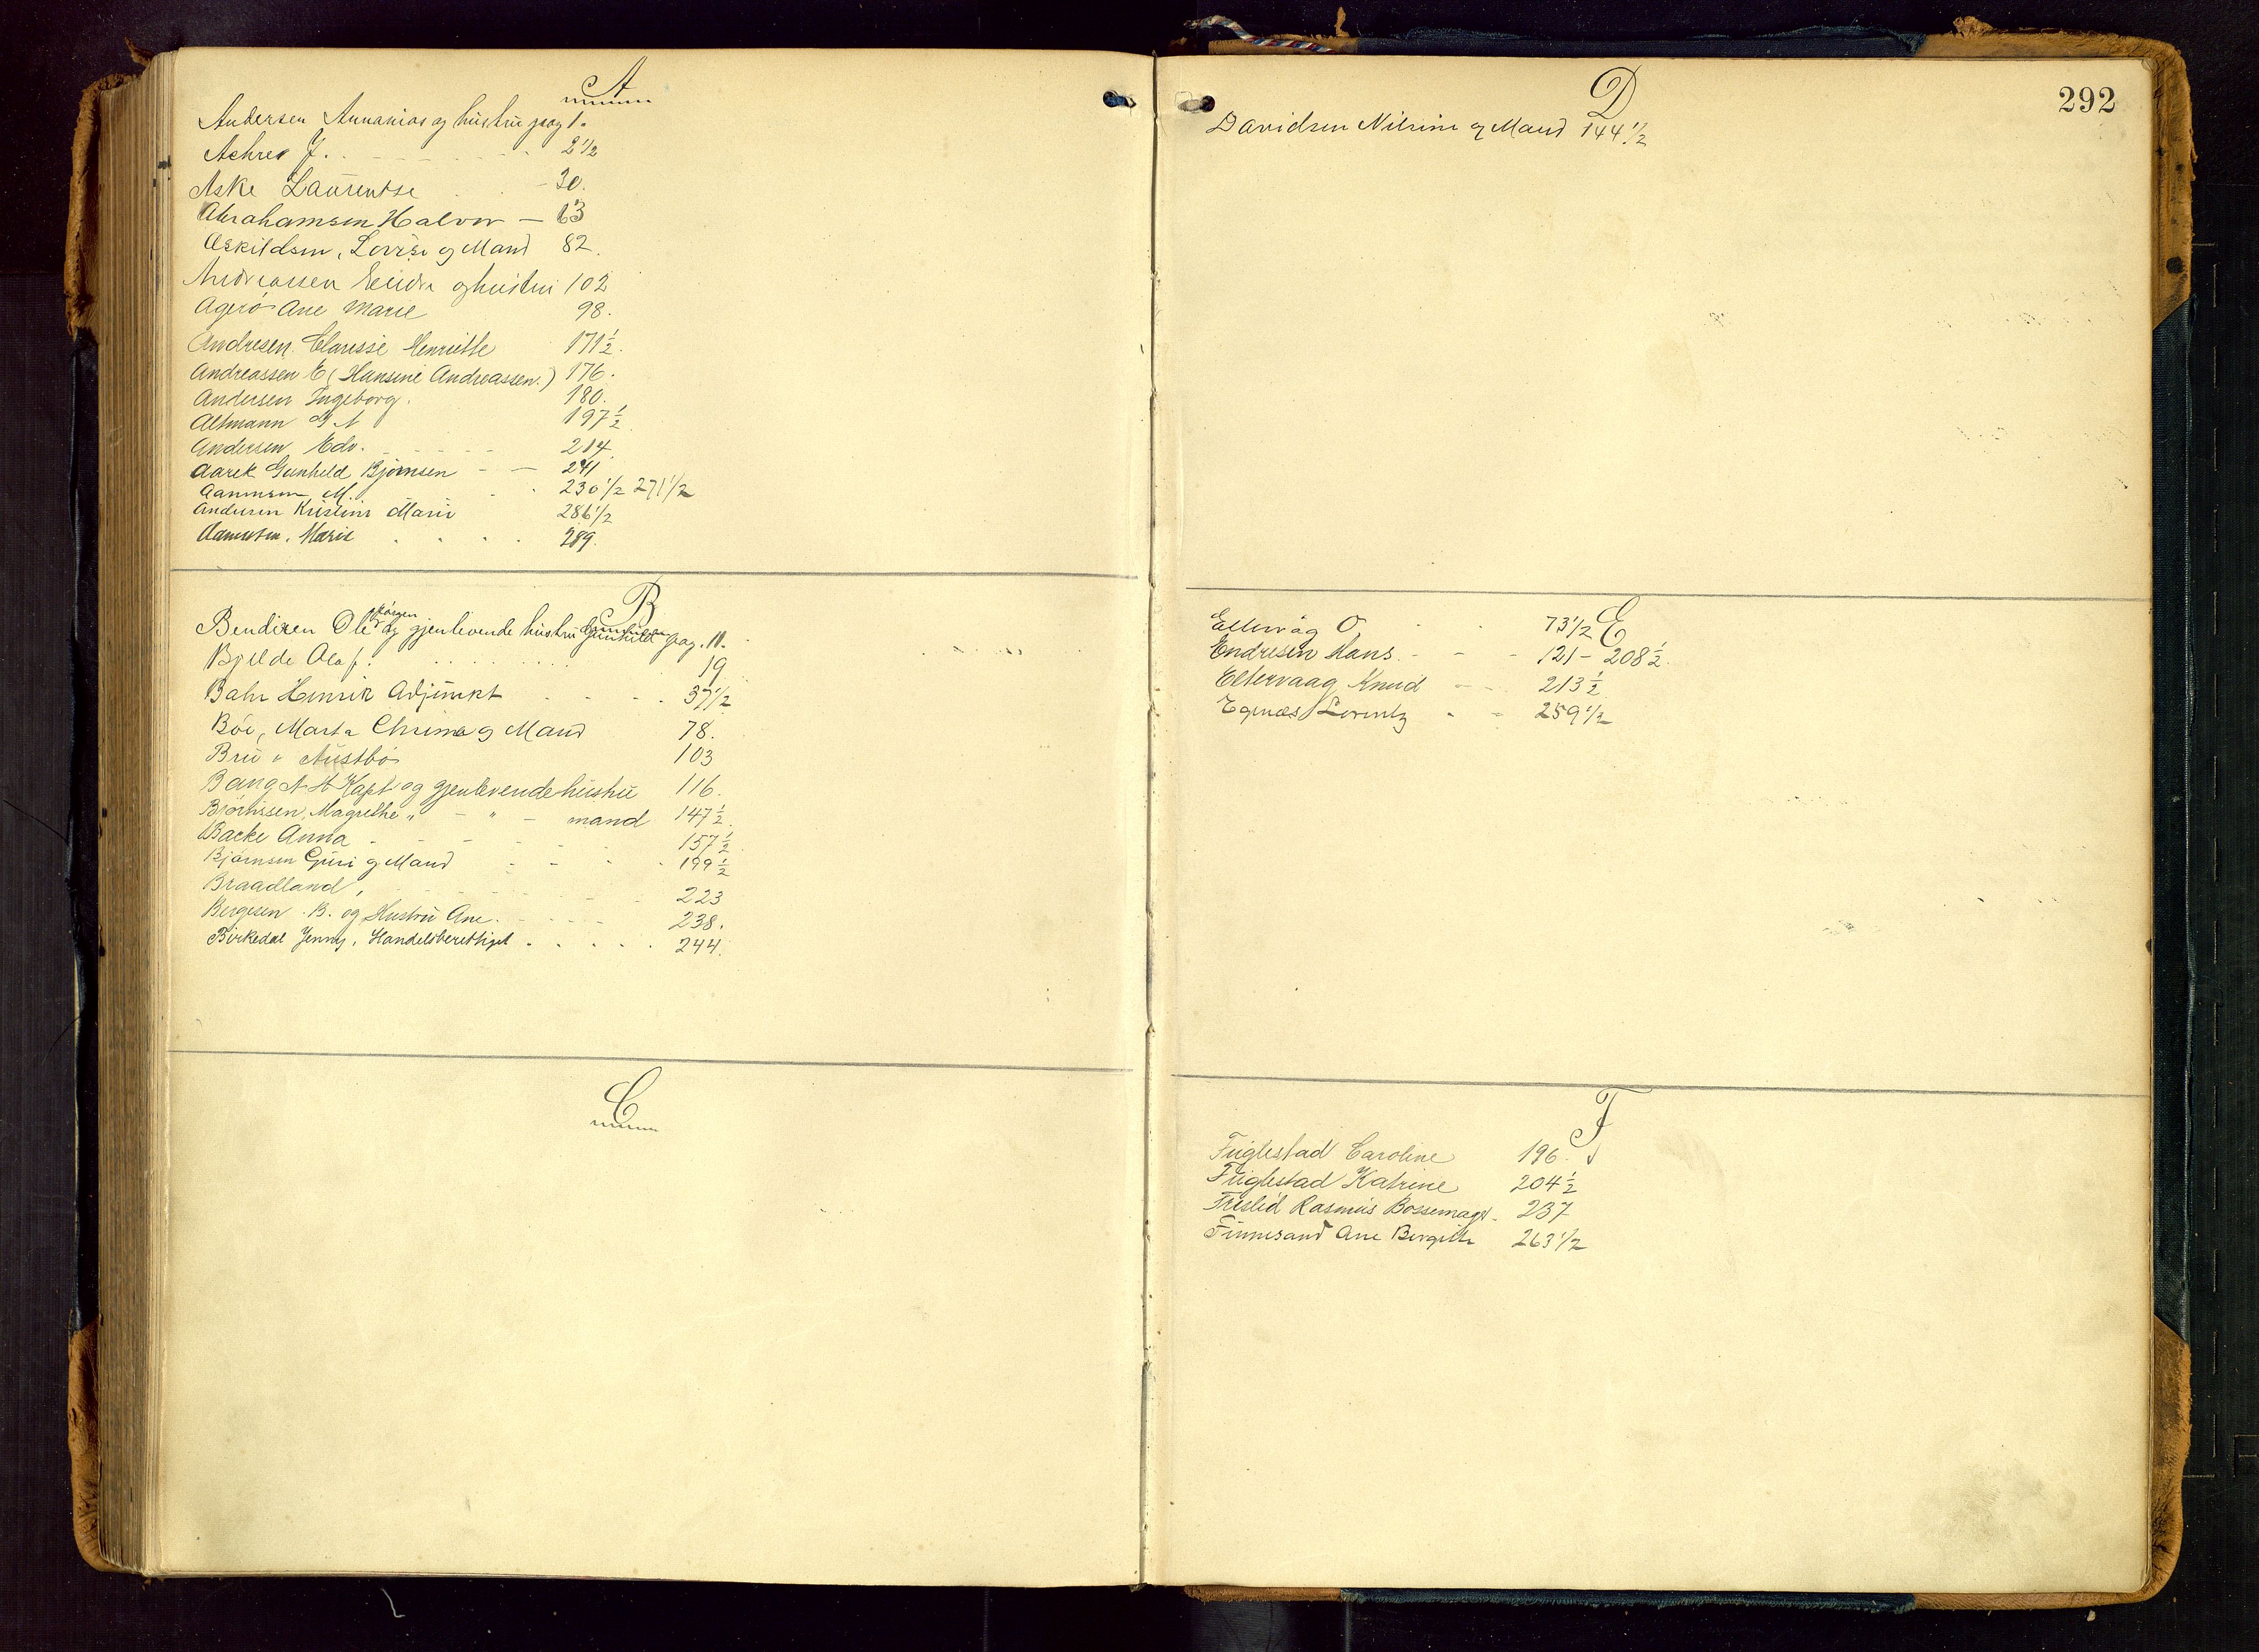 A
Andersen Annanias og hustru pag 1.
Achrer J. 2 1/2
Aske Laurentse - 30.
Abrahamsen Halvor — 63
Eskildsen, Lovise og Mand 82.
Andreassen Endre og hustru 102
Agerö Ane Marie 98.
Andresen Clarisse Henriette 171 1/2.
Andreassen E (Hansine Andreassen.) 176.
Andersen Ingeborg. 180.
Altmann 197 1/2.
Andersen Edv. 214.
Aarek Gunhild Bjørnsen - — 241
Aanensen M. 230 1/2 271 1/2
Andersen Kristine Marie 286 1/2
Aanensen. Marie 289.
B
Bendixen Ole og gjenlevende hustru Gunhild pag. 11.
Bjelde Olaf. 19
Bahr Henrik Adjunkt 37 1/2
Böe, Marta og Mand 78.
Bru Austbö 103
Bang Kapt og gjenlevende hustru 116.
Björnssen, Magrethe " - " - mand 147 1/2.
Backe Anna 157 1/2
Bjørnsen Guri og Mand 199 1/2
Braadland, 223
Bergesen. B. og Hustru Ane. 238.
Birkedal Jenny, Handelsberettiget 244.
C
292
D
Davidsen Nilsine og Mand 144 1/2
E
Eltervåg O. 73 1/2
Endresen Hans. - - - 121 - 208 1/2.
Eltervaag Knud - - 213 1/2
Egenæs Lorentz - - 259 1/2
F
Fuglestad Caroline 196.
Fuglestad Katrine 204 1/2
Rasmus Bossemager. 237
Finnesand Ane Bergitte 263 1/2